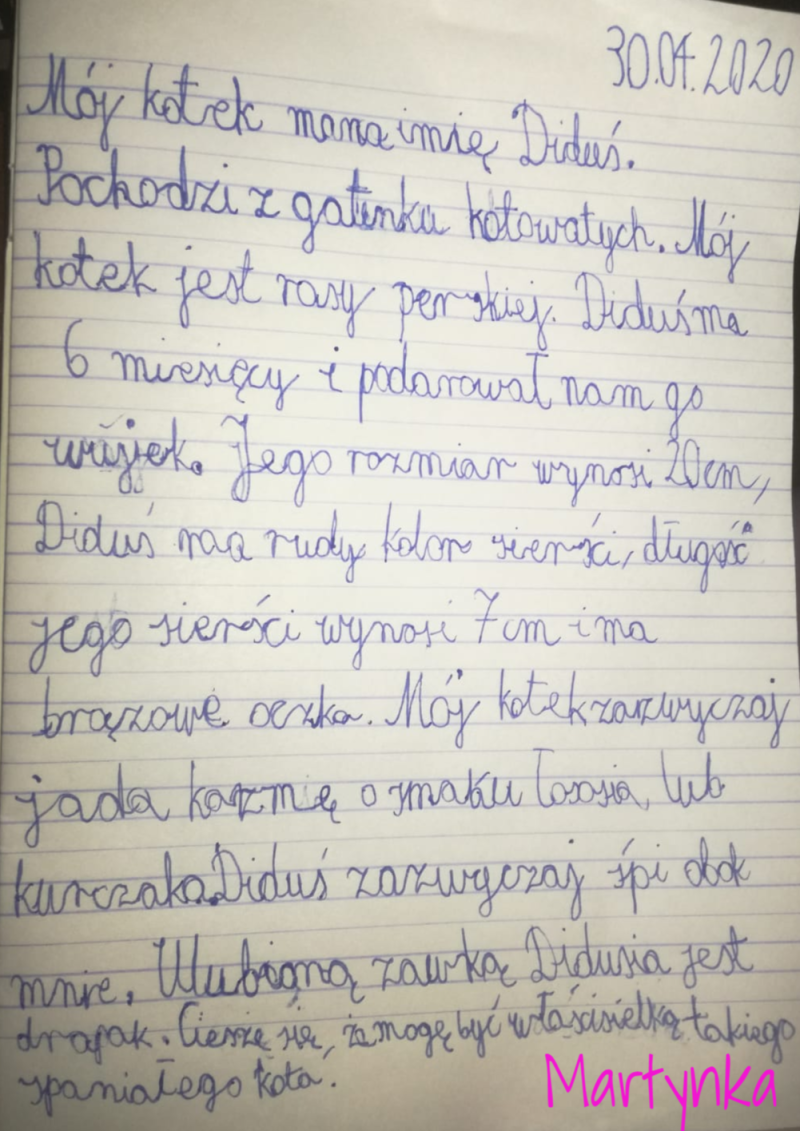 30.04.2020
Mój kotek ma na imię Diduś.
Pochodzi z gatunku kotowatych. Mój
kotek jest rasy perskiej. Diduś ma
6 miesięcy i podarował nam go
wujek. Jego rozmiar wynosi 20cm,
Diduś ma rudy kolor sierści, długość
jego sierści wynosi 7cm i ma
brązowe oczka. Mój kotek zazwyczaj
jada karmę o smaku łososia, lub
kurczaka. Diduś zazwyczaj śpi obok
mnie. Ulubioną zawką Didusia jest
drapak. Cieszę się, że mogę być właścisielką takiego
spaniałego kota.
Martynka